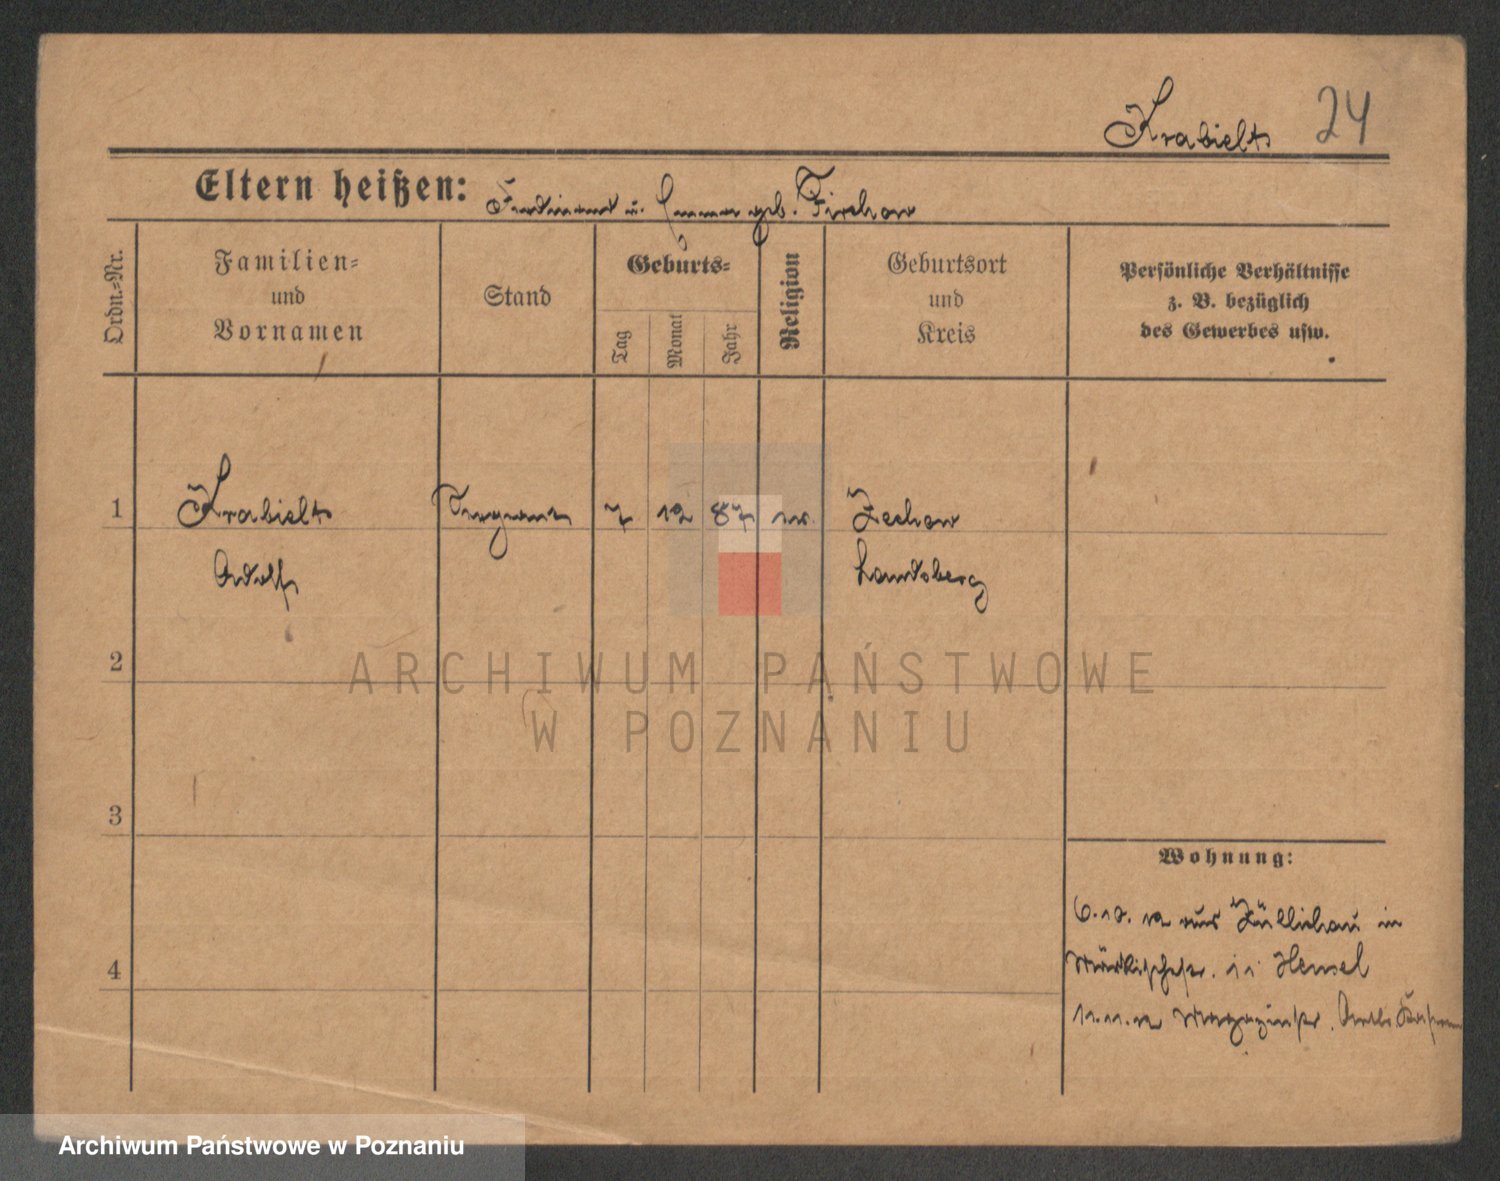 Krabielt 24
Eltern heißen: Ferdinand u. Emma geb. Firchow
Ordn.-Nr.
Familien-
und
Vornamen
Stand
Geburts-
Tag
Monat
Jahr
Religion
Geburtsort
und
Kreis
Persönliche Verhältnisse
z. B. bezüglich
des Gewerbes usw.
1 Krabielt 7 12 87 Zechow
Adolf Landsberg
2
3
4
Wohnung:
aus Züllichau in
11 Hensel
11.11.12 Magazinstr.
ARCHIWUM PAŃSTWOWE
W POZNANIU
Archiwum Państwowe w Poznaniu